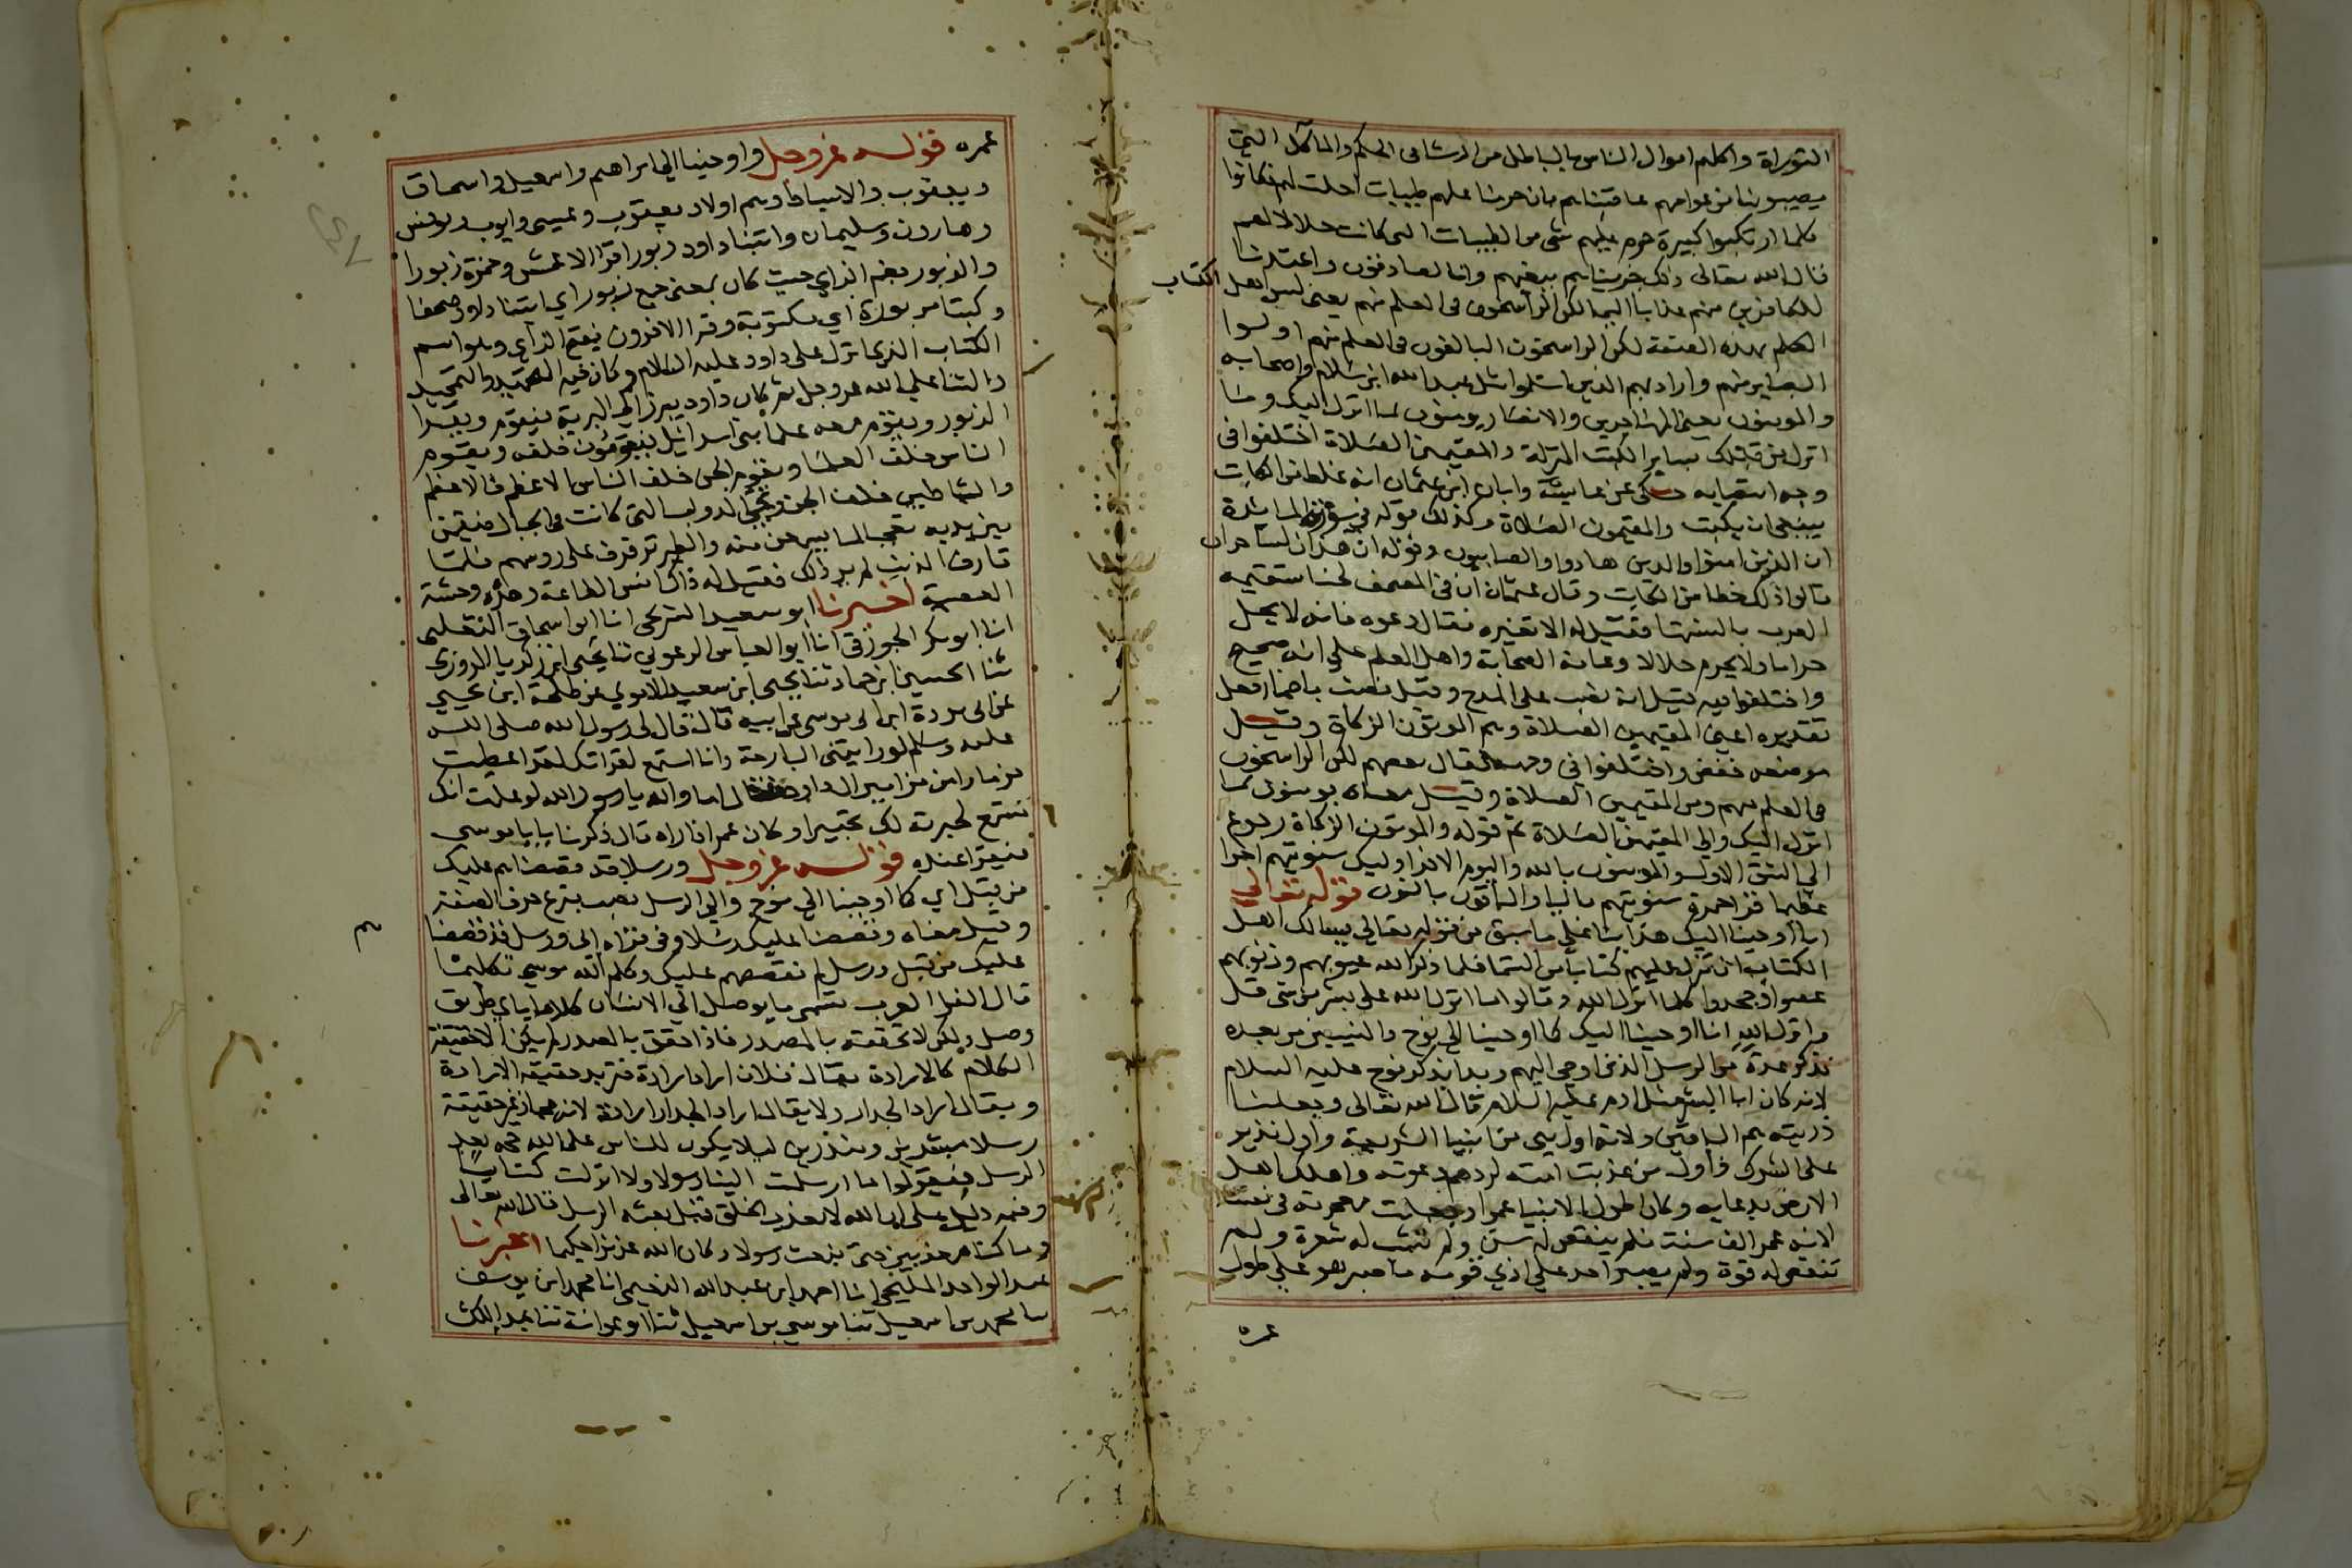 التوراة واكلهم اموال الناس بالباطل من الرشا في الحكم والماكل التي
يصيبونها من عوامهم عاقبناهم بان حرمنا عليهم طيبات احلت لهم فكانوا
كلما ارتكبوا كبيرة حرم عليهم شي من الطيبات التي كانت حلالا لهم
قال الله تعالى ذلك جزيناهم ببغيهم وانا لصادقون واعتدنا
للكافرين منهم عذابا اليما لكن الراسخون في العلم منهم يعني ليس اهل الكتاب
كلهم بهذه الصفة لكن الراسخون البالغون في العلم منهم اولوا
البصاير منهم واراد بهم الذين اسلموا مثل عبد الله ابن سلام واصحابه
والمومنون يعني المهاجرين والانصار يومنون بما انزل اليك وما
انزل من قبلك ساير الكتب المنزلة والمقيمين الصلاة اختلفوا في
وجه انتصابه حكى عن عايشة وابان ابن عثمان انه غلط من الكاتب
ينبغي ان يكتب والمقيمون الصلاة وكذلك قوله في سورة المائدة
ان الذين امنوا والدين هادوا والصابيون وقوله ان هذان لساحران
قالوا ذلك خطا من الكاتب وقال عثمان ان في المصحف لحنا ستقيمه
العرب بالسنتها فقيل له الا تغيره فقال دعوه فانه لا يحل
حراما ولا يحرم حلالا وعامة الصحابة واهل العلم على انه صحيح
واختلفوا فيه قيل انه نصب على المدح وقيل نصب باضمار فعل
تقديره اعني المقيمين الصلاة وهم الموتون الزكاة وقيل
موضعه خفض واختلفوا في وجهه فقال بعضهم لكن الراسخون
في العلم منهم ومن المقيمين الصلاة وقيل معناه يومنون بما
انزل اليك والي المقيمين الصلاة ثم قوله والموتون الزكاة رجوع
الي النسق الاول والمومنون بالله واليوم الاخر اوليك سنوتيهم اجرا
عظيما قرا حمزة سنوتيهم باليا والباقون بالنون قوله تعالي
انا اوحينا اليك هذا بنا على ما سبق من قوله تعالي يسالك اهل
الكتاب ان تنزل عليهم كتابا من السما فلما ذكر الله عيوبهم وذنوبهم
غضبوا وجحدوا كلما انزل الله وقالوا ما انزل الله على بشر من شي قل
وانزل الله انا اوحينا اليك كما اوحينا الي نوح والنبيين من بعده
فذكر عدة من الرسل الذين اوحي اليهم وبدا بذكر نوح عليه السلام
لانه كان ابا البشر مثل ادم عليه السلام قال الله تعالى وجعلنا
ذريته هم الباقين ولانه اول نبي من انبيا الشريعة واول نذير
على الشرك واول من عذبت امته لردهم دعوته واهلك اهل
الارض بدعايه وكان اطول الانبيا عمرا وجعلت معجزته في نفسه
لانه عمر الف سنة فلم ينقص له سن ولم تشب له شعرة ولم
تنقص له قوة ولم يصبر احد على اذي قومه ما صبر هو على طول
عمره
عمره قوله عز وجل واوحينا الي ابراهيم واسمعيل واسحاق
ويعقوب والاسباط وهم اولاد يعقوب وعيسى وايوب ويونس
وهارون وسليمان واتينا داود زبورا قرا الاعمش وحمزة زبورا
والزبور بضم الزاي حيث كان بمعنى جمع زبور اي اتينا داود صحفا
وكتبا مزبورة اي مكتوبة وقرا الاخرون بفتح الزاي وهو اسم
الكتاب الذي انزل على داود عليه السلام وكان فيه التحميد والتمجيد
والثنا على الله عز وجل ثم كان داود يبرز الي البرية فيقوم ويقرا
الزبور ويقوم معه علما بني اسرائيل فيقومون خلفه ويقوم
الناس خلف العلما ويقوم الجن خلف الناس الاعظم فالاعظم
والشياطين خلف الجن وتجي الدواب التي كانت في الجبال فيقمن
بين يديه تعجبا لما يسمعن منه والطير ترفرف على روسهم فلما
قارف الذنب لم ير ذلك فقيل له ذاك انس الطاعة وهذه وحشة
المعصية اخبرنا ابو سعيد الشريحي انا ابو اسحاق الثعلبي
انا ابو بكر الجوزقي انا ابو العباس الدغولي ثنا يحيى ابن زكريا المروزي
ثنا الحسين ابن حماد ثنا يحيى ابن سعيد الاموي عن طلحة ابن يحيى
عن ابى بردة ابن ابى موسى عن ابيه قال قال لي رسول الله صلى الله
عليه وسلم لو رايتني البارحة وانا استمع لقراتك لقد اعطيت
مزمارا من مزامير ال داود فقال اما والله يا رسول الله لو علمت انك
تستمع لحبرته لك تحبيرا وكان عمر اذا راه قال ذكرنا يا ابا موسى
فيقرا عنده قوله عز وجل ورسلا قد قصصناهم عليك
من قبل اي كما اوحينا الي نوح والي الرسل نصب بنزع حرف الصفة
وقيل معناه وقصصنا عليك رسلا وفي قراة ابي ورسل قد قصصنا
عليك من قبل ورسل لم نقصصهم عليك وكلم الله موسي تكليما
قال الفرا العرب تسمي ما يوصل الي الانسان كلاما باي طريق
وصل ولكن لا تحققه بالمصدر فاذا حقق بالمصدر لم يكن الا حقيقة
الكلام كالارادة يقال فلان اراد ارادة فتريد حقيقة الارادة
ويقال اراد الجدار ولا يقال اراد الجدار ارادة لانه مجاز غير حقيقة
رسلا مبشرين ومنذرين ليلا يكون للناس على الله حجة بعد
الرسل فيقولوا ما ارسلت الينا رسولا ولا انزلت كتابا
وفيه دليل على ان الله لا يعذب الخلق قبل بعثه الرسل قال الله تعالى
وما كنا معذبين حتى نبعث رسولا وكان الله عزيزا حكيما اخبرنا
عبد الواحد المليحي انا احمد ابن عبد الله النعيمي انا محمد ابن يوسف
ثنا محمد بن اسمعيل ثنا موسي بن اسمعيل ثنا ابو عوانة ثنا عبد الملك